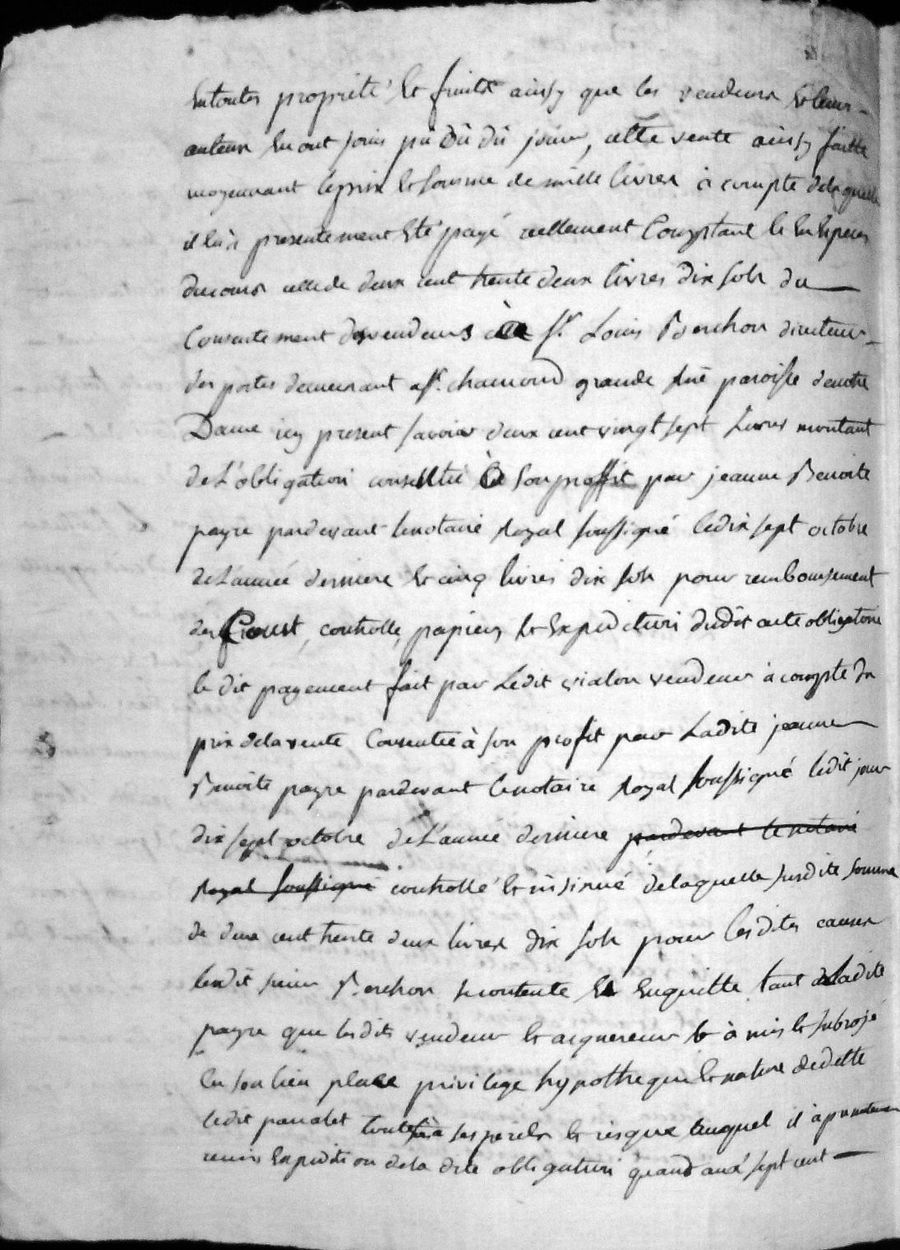 en toutes propriété et fruits ainsy que les vendeurs et leurs
auteurs en ont joui pu ou dû jouir, cette vente ainsy faitte
moyennant le prix et somme de mille livres à compte de laquelle
il luy à presentement eté payé reellement Comptant et en Especes
du cours celle de deux cent trente deux livres dix sols du
Consentement des vendeurs à Sr. Louis Berchon directeur
des postes demeurant a St. chamond grande rue paroisse de notre
Dame icy present savoir deux cent vingt sept Livres montant
de L'obligation consentie à son proffit par jeanne Benoite
payre pardevant le notaire Royal soussigné le dix sept octobre
de L'année derniere et cinq livres dix sols pour remboursement
des Coust, controlle, papiers et Expedition dudit acte obligatoire
le dit payement fait par Ledit vialon vendeur à compte du
prix de la vente Consentie à son profit par Ladite jeanne
Benoite payre pardevant le notaire Royal soussigné ledit jour
dix sept octobre de L'année derniere pardevant le notaire
Royal soussigné controllé et insinué de laquelle susdite somme
de deux cent trente deux livres dix sols pour lesdites causes
ledit sieur Berchon se contente et en quitte tant Ladite
payre que lesdits vendeur et acquereur et à mis et subrogé
en son lieu place privilege hypotheque et nature de dette
ledit toutefois à ses perils et risques auquel il à presentement
remis Expedition de la dite obligation quand aux sept cent